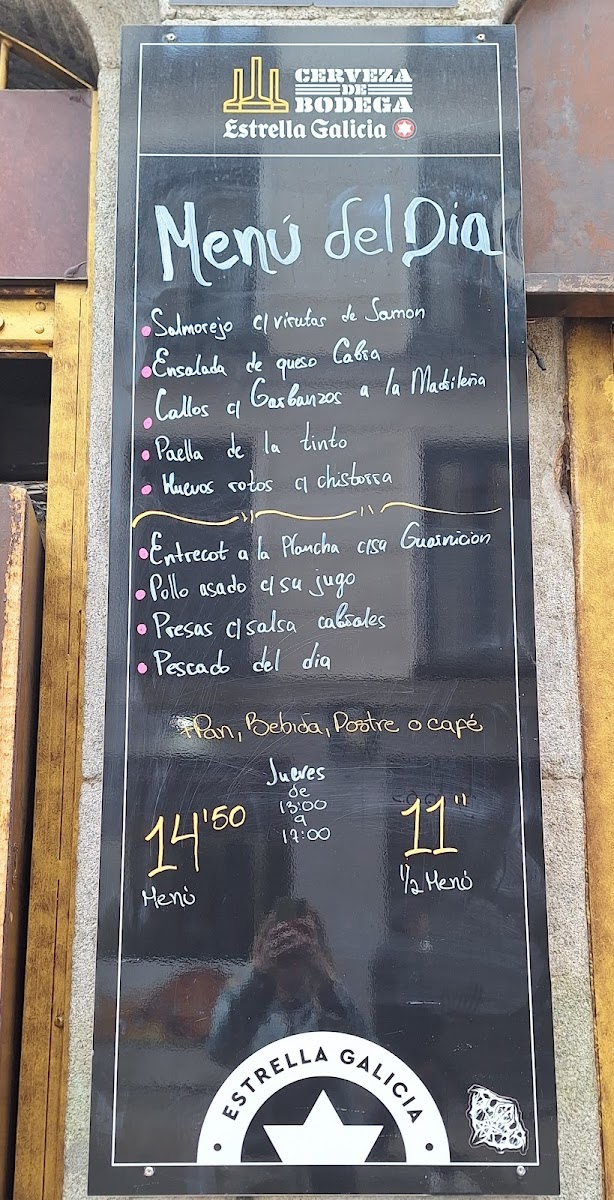 CERVEZA
DE
BODEGA
Estrella Galicia
Menú del Día
Salmorejo c/ virutas de Jamon
Ensalada de queso Cabra
Callos c/ Garbanzos a la Madrileña
Paella de la tinto
Huevos rotos c/ chistorra
Entrecot a la Plancha c/su Guarnicion
Pollo asado c/ su jugo
Presas c/ salsa cabrales
Pescado del dia
+Pan, Bebida, Postre o café
Jueves
de
13:00
a
17:00
14'50
Menú
11''
1/2 Menú
ESTRELLA GALICIA